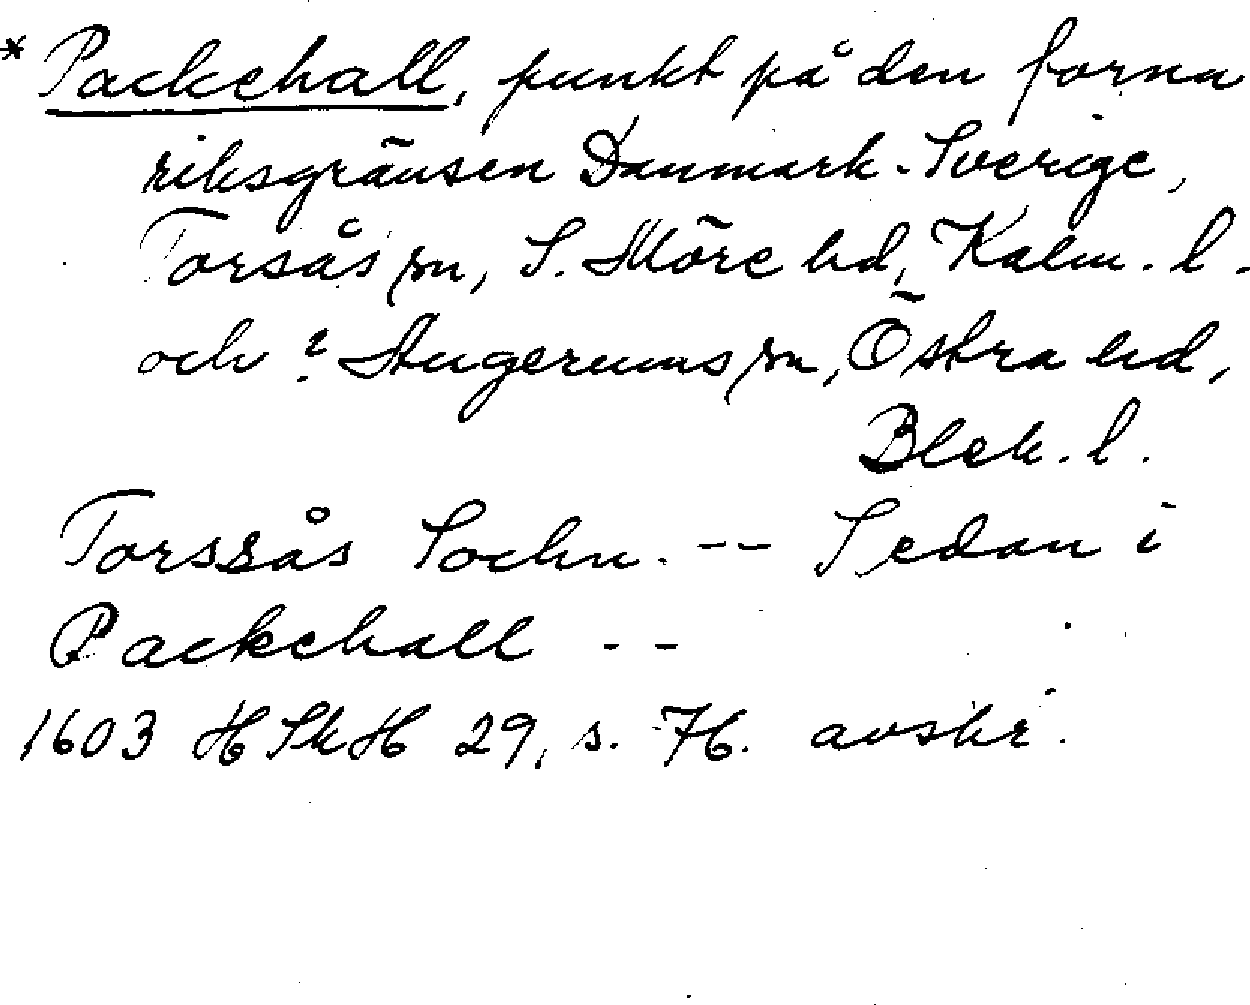 * Packehall, punkt på den forna
riksgränsen Danmark-Sverige,
Torsås sn, S. Möre hd, Kalm. l.
och ? Augerums sn, Östra hd,
Blek. l.
Torssås Sochn. -- Sedan i
Packehall --
1603 HSkH 29, s. 76. avskr.